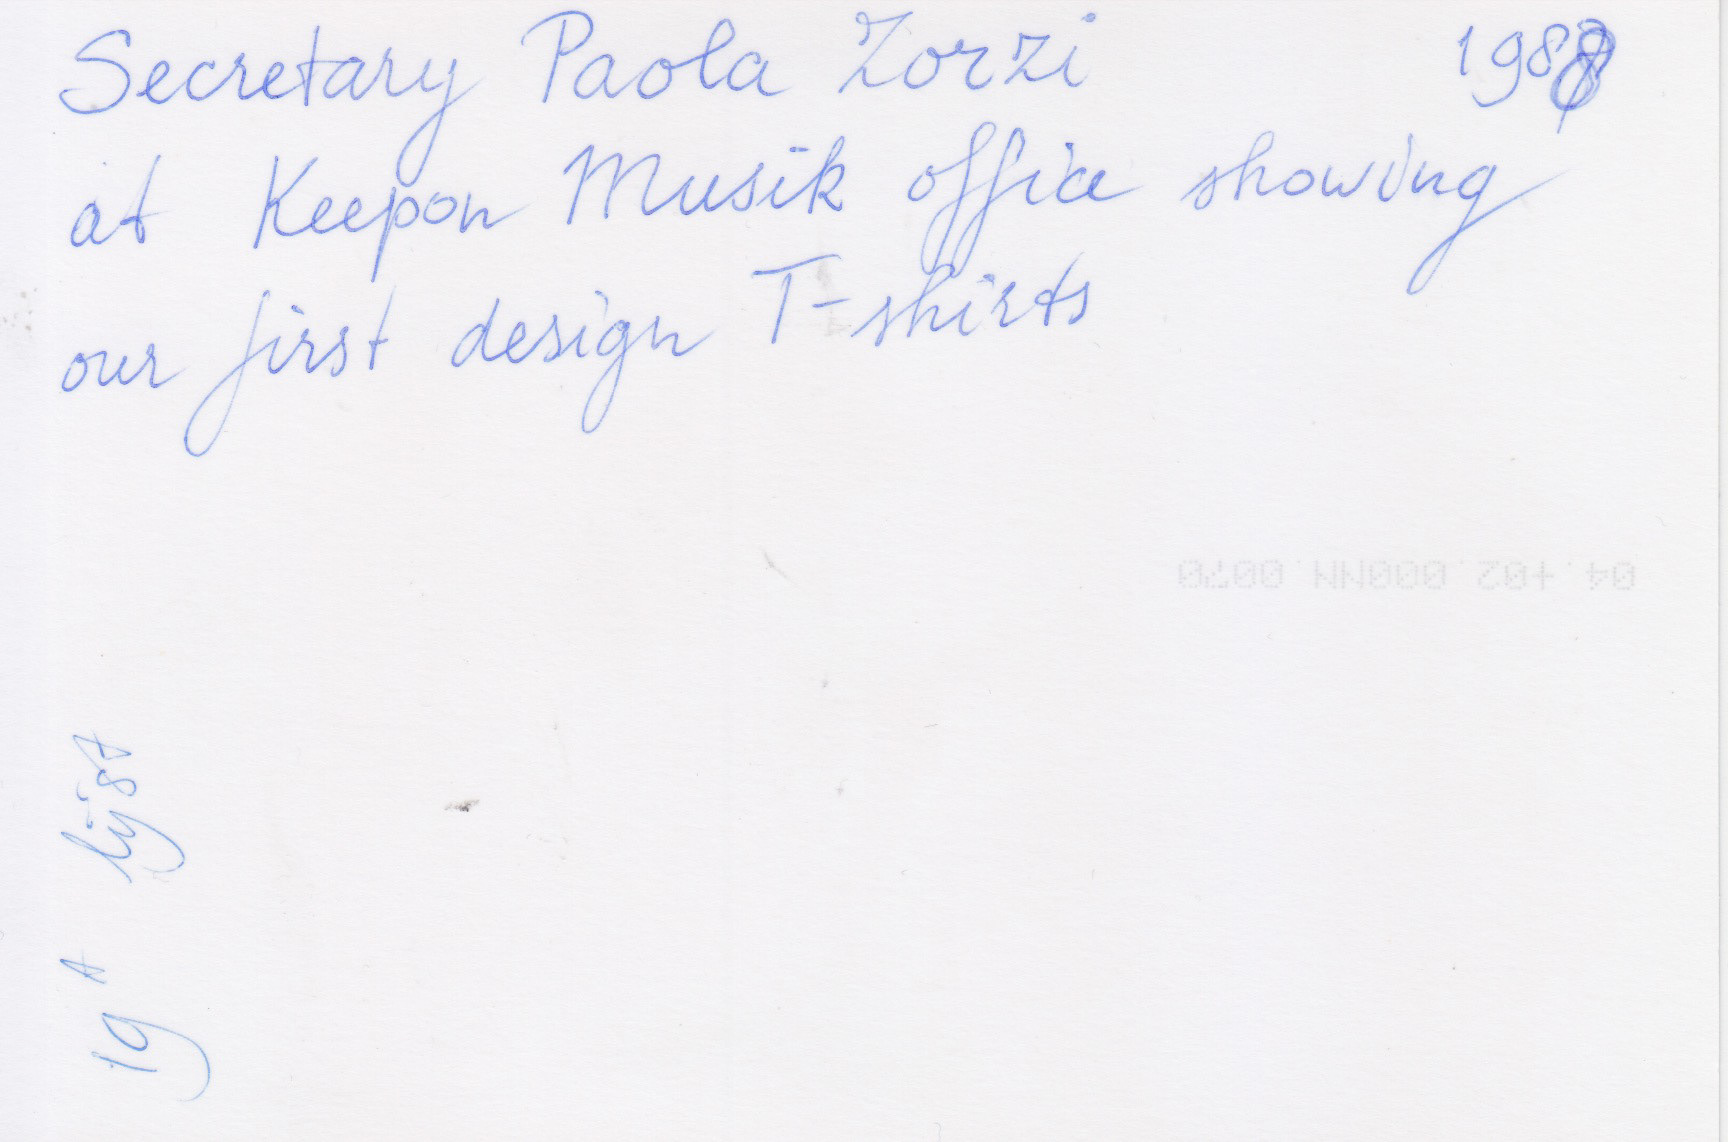 Secretary Paola Zorzi 1988
at Keepon Musik office showing
our first design T-shirts
04 +02 000NN 0070
19A lijst